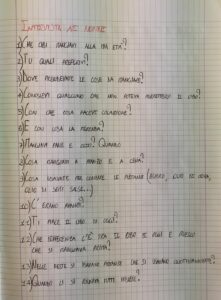 INTERVISTA AI NONNI
1) CHE CIBI MANGIAVI ALLA MIA ETÀ?
2) TU QUALI PREFERIVI?
3) DOVE PRENDEVATE LE COSE DA MANGIARE?
4) CONOSCEVI QUALCUNO CHE NON POTEVA PERMETTERSI IL CIBO?
5) CON CHE COSA FACEVI COLAZIONE?
6) E CON COSA LA MERENDA?
7) MANGIAVI PANE E DOLCI? QUANDO
8) COSA MANGIAVI A PRANZO E A CENA?
9) COSA USAVATE PER CONDIRE LE PIETANZE (BURRO, OLIO DI OLIVA,
OLIO DI SEMI, SALSE...)
10) C'ERANO AVANZI?
11) TI PIACE IL CIBO DI OGGI?
12) CHE DIFFERENZA C'È TRA IL CIBO DI OGGI E QUELLO
CHE SI MANGIAVA PRIMA?
13) NELLE FESTE SI MANGIAVA CHE SI MANGIAVA QUOTIDIANAMENTE?
14) QUANDO CI SI SEDEVA TUTTI INSIEME?